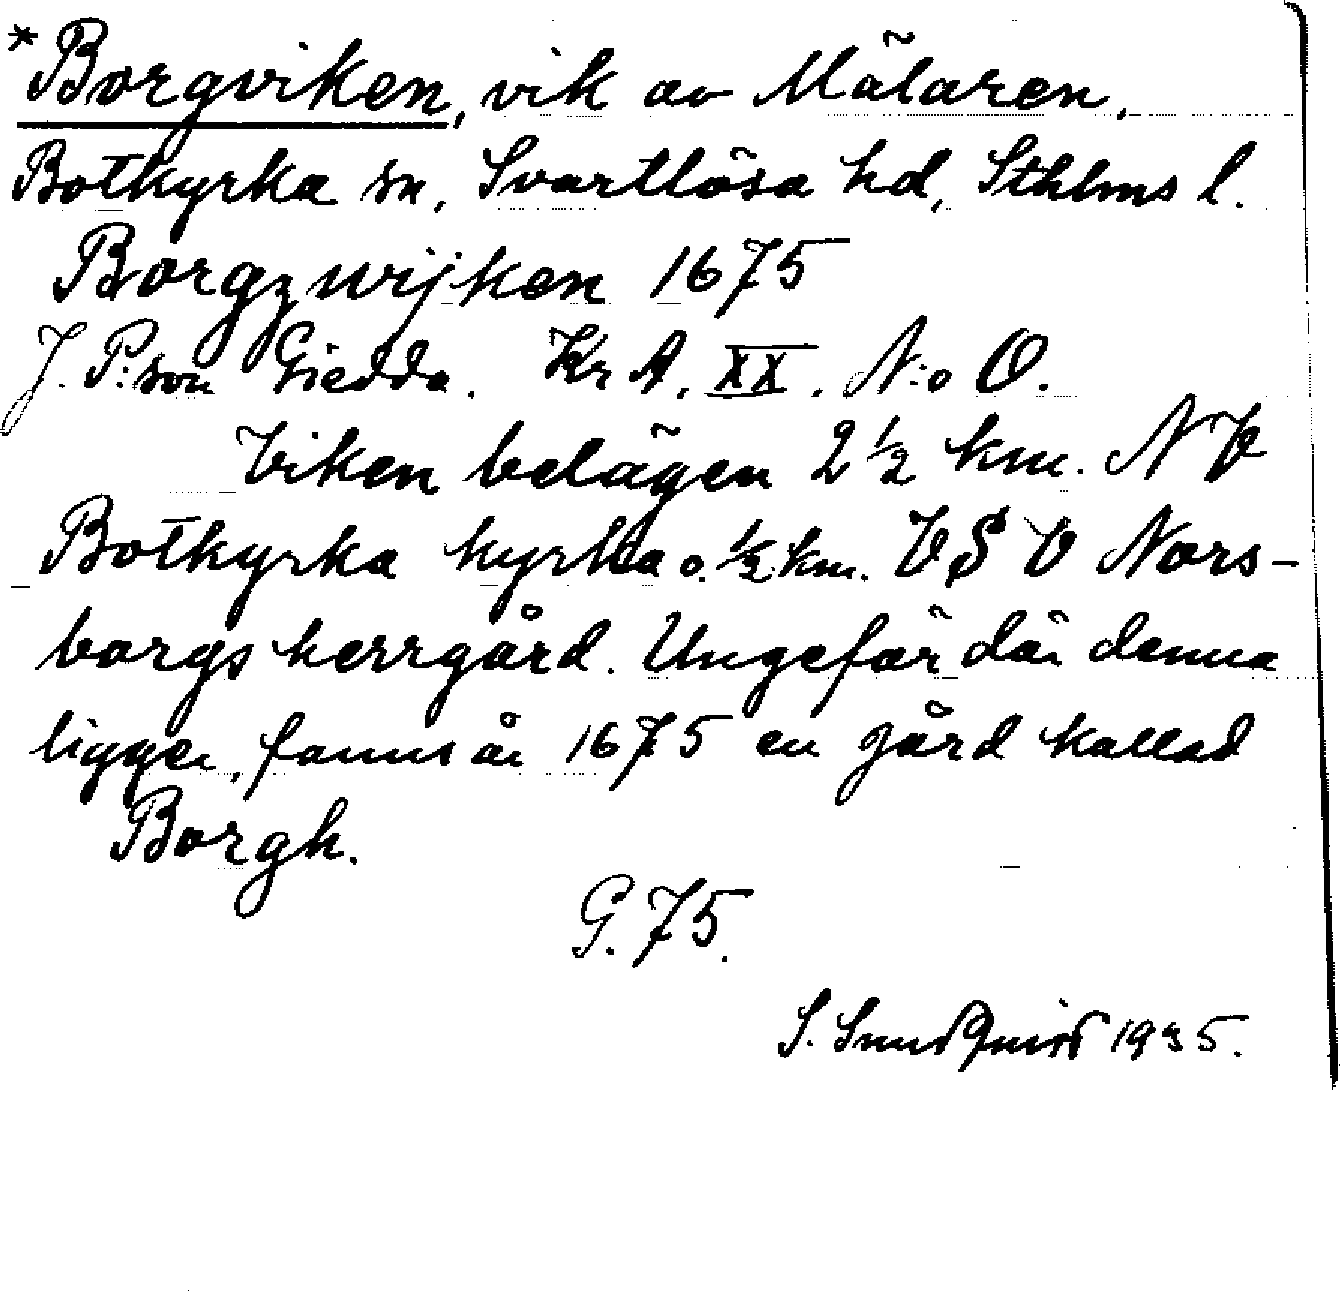 *Borgviken, vik av Mälaren,
Botkyrka sn, Svartlösa hd, Sthlms l.
Borgzwijken 1675
J. P:son Giedda. Kr A. XX. N:o O.
Viken belägen 2 ½ km. NV
Botkyrka kyrka o. ½ km. VSV Nors-
borgs herrgård. Ungefär där denna
ligger, fanns år 1675 en gård kallad
Borgh.
G. 75.
S. 1935.